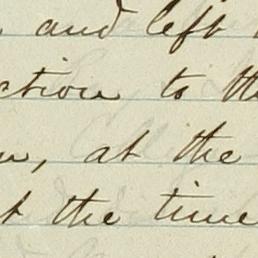 and left
ction to the
, at the
t the time